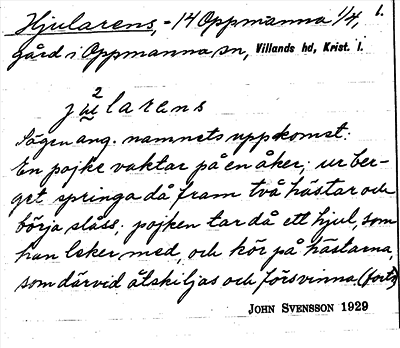 Hjularens, - 14 Oppmanna 1/4, 1.
gård i Oppmanna sn, Villands hd, Krist. l.
2
jularens
Sägen ang. namnets uppkomst:
En pojke vaktar på en åker; ur ber-
get springa då fram två hästar och
börja slåss; pojken tar då ett hjul, som
han leker med, och kör på hästarna,
som därvid åtskiljas och försvinna. (forts)
JOHN SVENSSON 1929